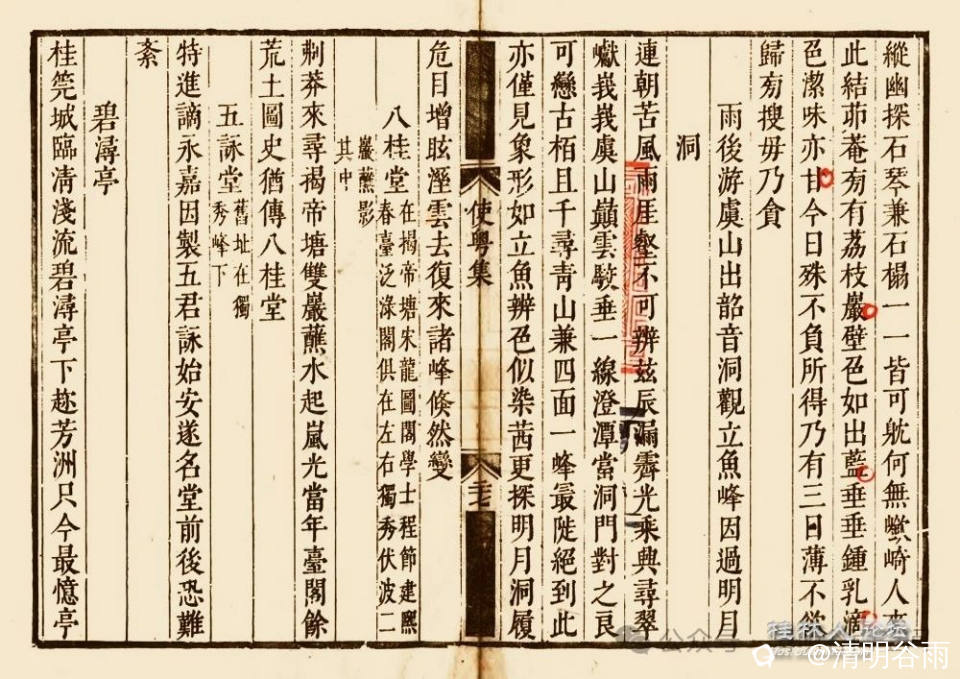 縱幽探石琴兼石榻一一皆可躭何無嶔崎人來
此結茆菴旁有荔枝巖壁色如出藍垂垂鍾乳滴
色潔味亦甘今日殊不負所得乃有三日薄不欲
歸旁搜毋乃貪
雨後游虞山出韶音洞觀立魚峰因過明月
洞
連朝苦風雨厓壑不可辨茲辰漏霽光乘興尋翠
巘峩峩虞山巔雲駿垂一線澄潭當洞門對之良
可戀古栢且千尋青山兼四面一峰最陡絕到此
亦僅見象形如立魚辨色似染茜更探明月洞履
使粤集
二七
危目增眩溼雲去復來諸峰倏然變
八桂堂
在揭帝塘宋龍圖閣學士程節建熈
春臺泛淥閣俱在左右獨秀伏波二
巖蘸影
其中
剃莽來尋揭帝塘雙巖蘸水起嵐光當年臺閣餘
荒土圖史猶傳八桂堂
五詠堂
舊址在獨
秀峰下
特進謫永嘉因製五君詠始安遂名堂前後恐難
紊
碧潯亭
桂筦城臨清淺流碧潯亭下趂芳洲只今最憶亭
公众号
桂林人论坛
@清明谷雨